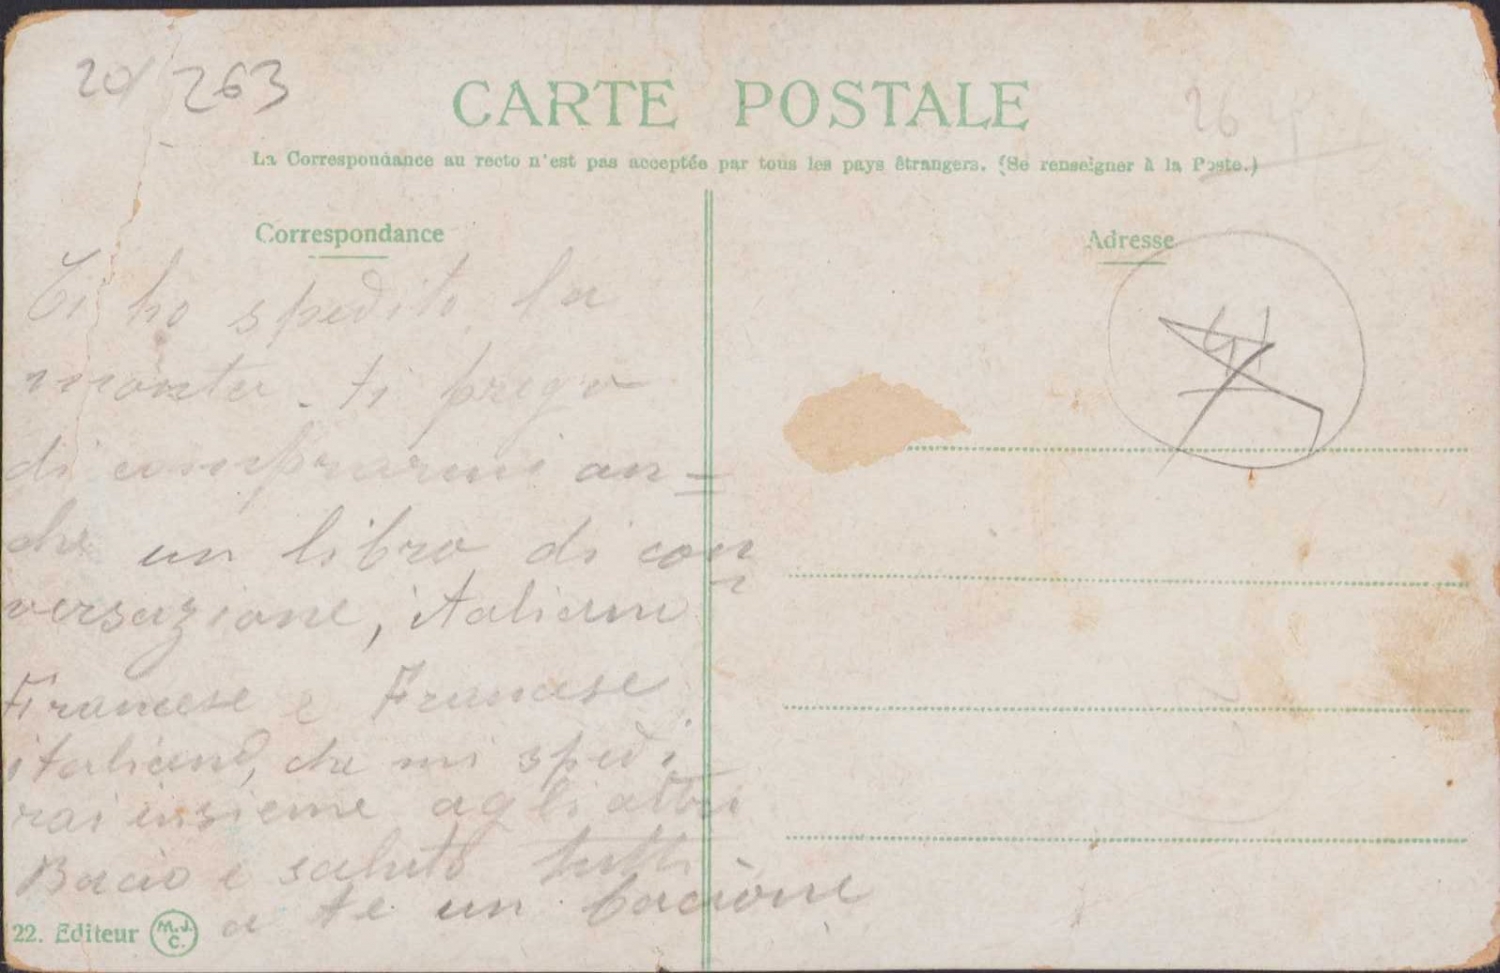 20/ 263
26
CARTE POSTALE
La Correspondance au recto n'est pas acceptée par tous les pays étrangers. (Se renseigner à la Poste.)
Correspondance
Adresse
Ti ho spedito la
ti prego
di comprarmi an=
che un libro di con=
versazione, italiano
Francese e Francese
italiano, che mi spedi
rai insieme agli altri
Bacio e saluto tutti
a te un bacione
22. Editeur M.J.C.